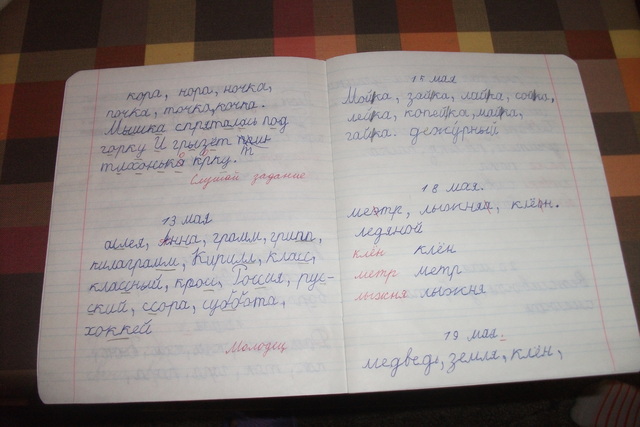 кора, нора, ночка,
почка, точка, кочка.
Мышка спряталась под
горку И грызёт
крпку.
Слушай задание
13 мая
аллея, Анна, грамм, группа,
килаграмм, Кирилл, класс,
классный, кросс, Россия, рус-
ский, ссора, суббота,
хоккей
Молодец
15 мая
Мойка, зайка, лайка,
лейка, копейка, майка,
гайка. дежурный
18 мая.
метр, лыжня, клён.
ледяной
клён клён
метр метр
лыжня лыжня
19 мая.
медведь, земля, клён,